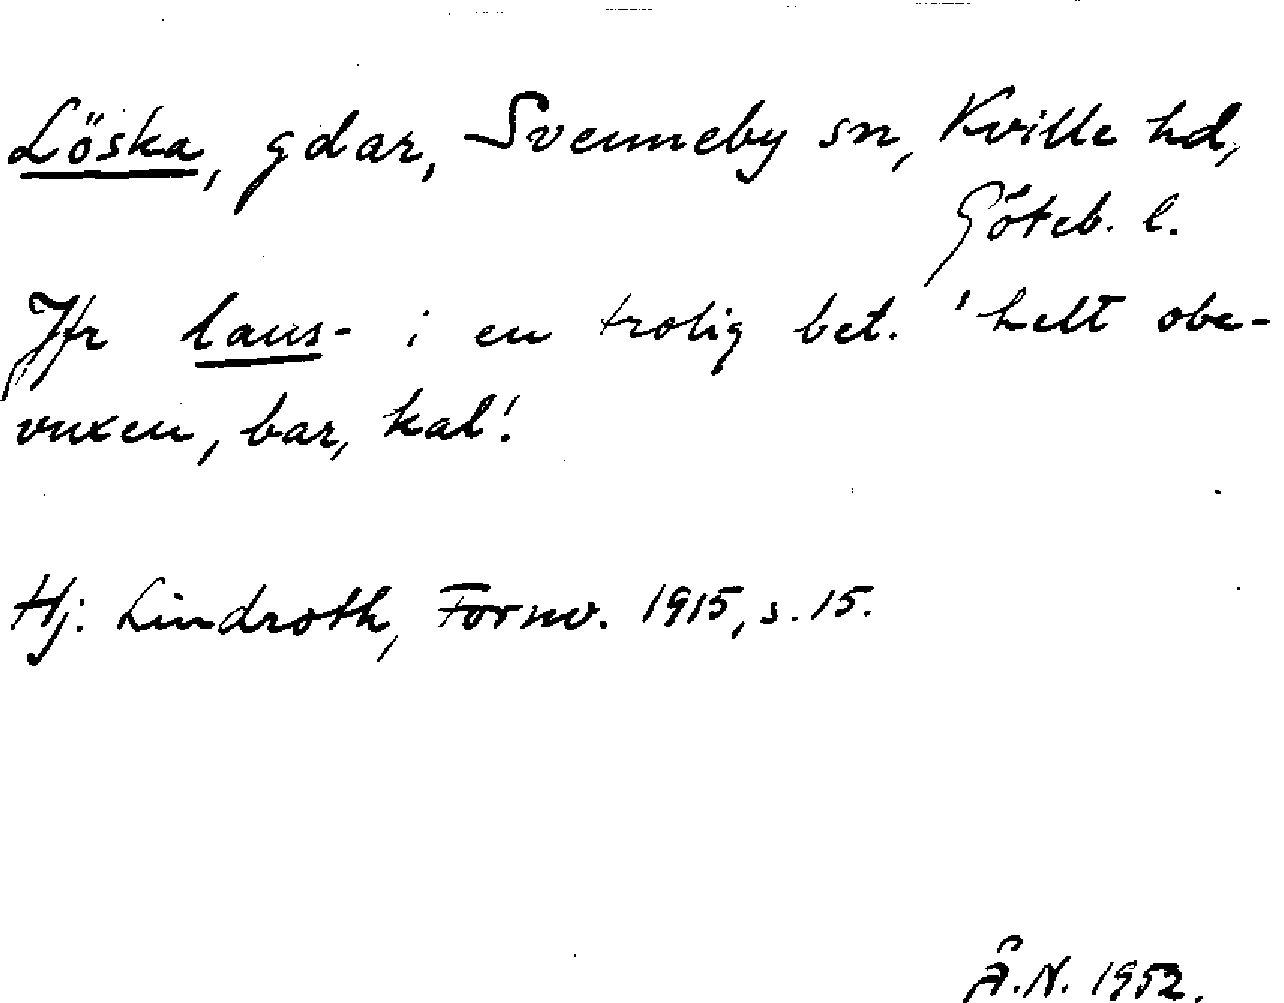 Löska, gdar, Svenneby sn, Kville hd,
Göteb. l.
Jfr laus- i en trolig bet. 'helt obe-
vuxen, bar, kal'.
Hj. Lindroth, Fornv. 1915, s. 15.
Å.N. 1952.